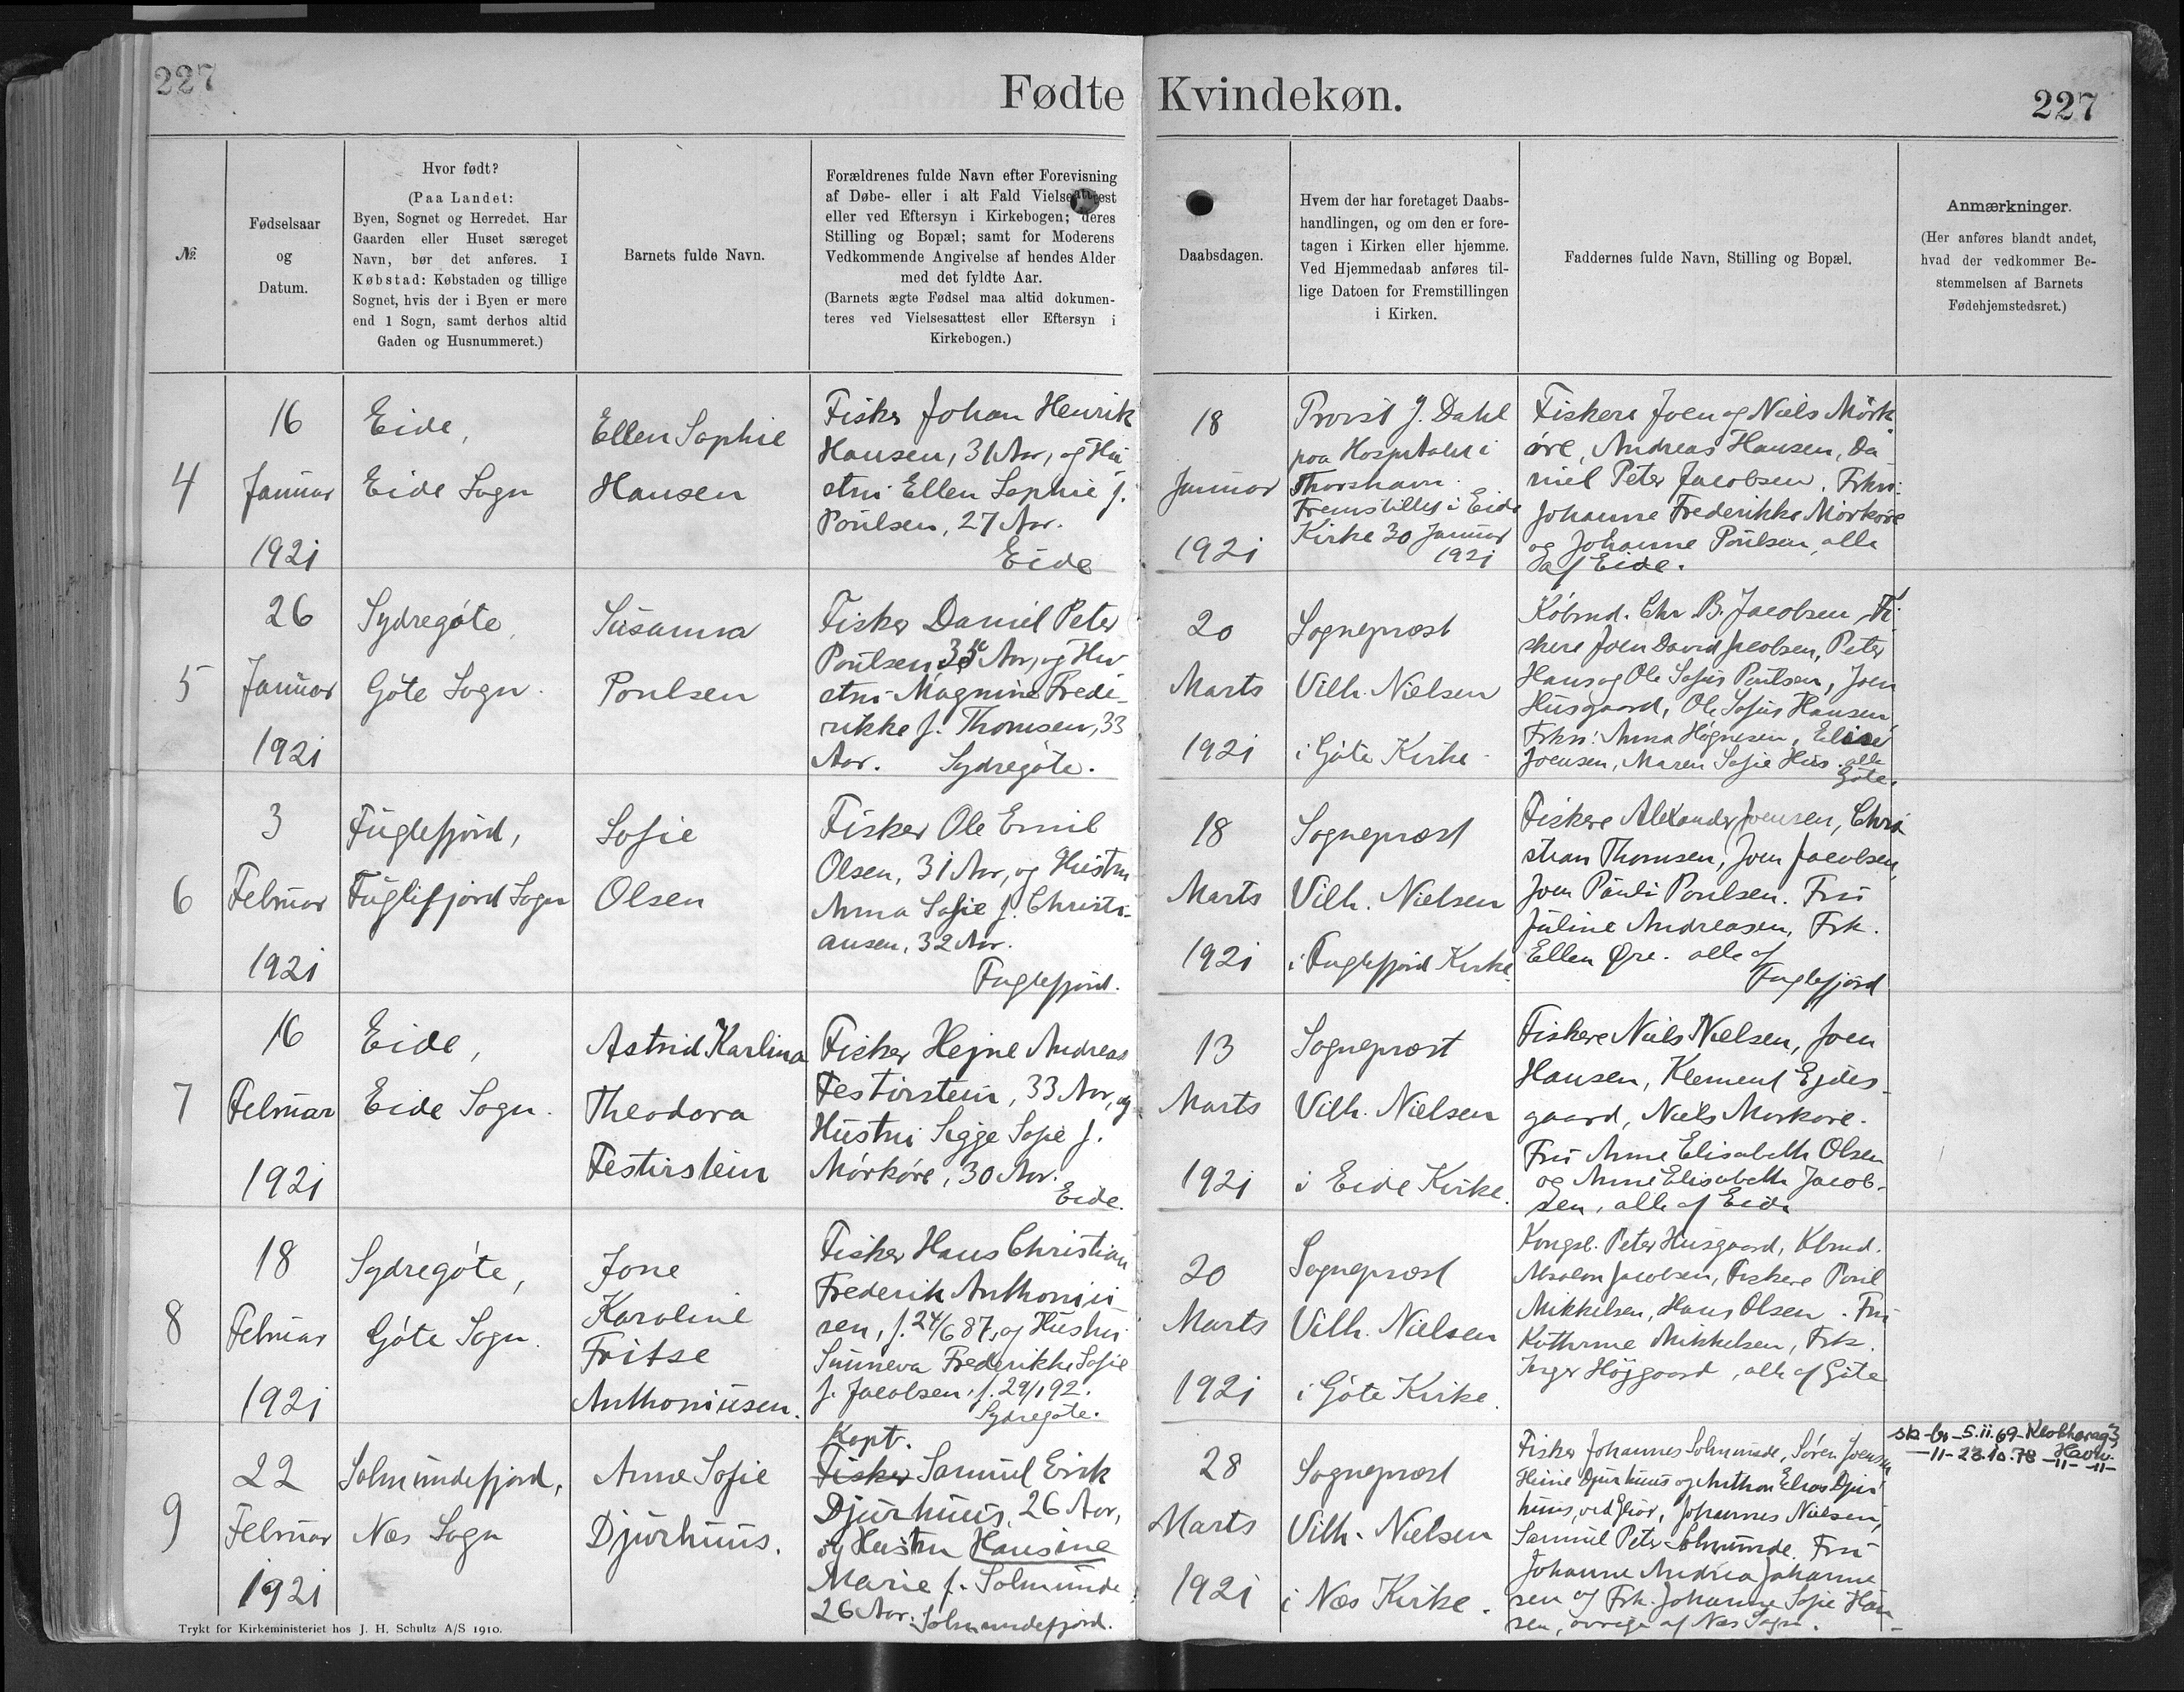 227
Fødte Kvindekøn.
227
№
Fødselsaar
og
Datum.
Hvor født?
(Paa Landet:
Byen, Sognet og Herredet. Har
Gaarden eller Huset særeget
Navn, bør det anføres. I
Købstad: Købstaden og tillige
Sognet, hvis der i Byen er mere
end 1 Sogn, samt derhos altid
Gaden og Husnummeret.)
Barnets fulde Navn.
Forældrenes fulde Navn efter Forevisning
af Døbe- eller i alt Fald Vielsesattest
eller ved Eftersyn i Kirkebogen; deres
Stilling og Bopæl; samt for Moderens
Vedkommende Angivelse af hendes Alder
med det fyldte Aar.
(Barnets ægte Fødsel maa altid dokumen-
teres ved Vielsesattest eller Eftersyn i
Kirkebogen.)
Daabsdagen.
Hvem der har foretaget Daabs-
handlingen, og om den er fore-
tagen i Kirken eller hjemme.
Ved Hjemmedaab anføres til-
lige Datoen for Fremstillingen
i Kirken.
Faddernes fulde Navn, Stilling og Bopæl.
Anmærkninger.
(Her anføres blandt andet,
hvad der vedkommer Be-
stemmelsen af Barnets
Fødehjemstedsret.)
4
16
Januar
1921
Eide,
Eide Sogn
Ellen Sophie
Hansen
Fisker Johan Henrik
Hansen, 31 Aar, og Hu
stru Ellen Sophie f.
Poulsen, 27 Aar.
Eide
18
Januar
1921
Provst J. Dahl
paa Hospitalet i
Thorshavn.
Fremstillet i Eide
Kirke 30 Januar
1921
Fiskere Joen og Niels Mørk
øre, Andreas Hansen, Da
niel Peter Jacobsen. Frkn:
Johanne Frederikke Mørkøre
og Johanne Poulsen, alle
af Eide.
5
26
Januar
1921
Sydregøte,
Gøte Sogn.
Susanna
Poulsen
Fisker Daniel Peter
Poulsen, 35 Aar, og Hu
stru Magnine Frede-
rikke f. Thomsen, 33
Aar. Sydregøte.
20
Marts
1921
Sognepræst
Vilh. Nielsen
i Gøte Kirke.
Købmd. Chr. B. Jacobsen, Fi
skere Joen David Jacobsen, Peter
Hans og Ole Sofus Poulsen, Joen
Husgaard, Ole Sofus Hansen,
Frkn: Anna Høgnesen, Elise
Joensen, Maren Sofie Hus. alle
Gøte.
6
3
Februar
1921
Fuglefjord,
Fuglefjord Sogn
Sofie
Olsen
Fisker Ole Emil
Olsen, 31 Aar, og Hustru
Anna Sofie f. Christi-
ansen, 32 Aar.
Fuglefjord.
18
Marts
1921
Sognepræst
Vilh. Nielsen
i Fuglefjord Kirke.
Fiskere Alexander Joensen, Chri
stian Thomsen, Joen Jacobsen,
Joen Pauli Poulsen. Fru
Juline Andreasen, Frk.
Ellen Øre. alle af
Fuglefjord
7
16
Februar
1921
Eide,
Eide Sogn.
Astrid Karlina
Theodora
Festirstein
Fisker Hejne Andreas
Festirstein, 33 Aar, og
Hustru Sigge Sofie f.
Mørkøre, 30 Aar.
Eide.
13
Marts
1921
Sognepræst
Vilh. Nielsen
i Eide Kirke.
Fiskere Niels Nielsen, Joen
Hansen, Klement Ejdes-
gaard, Niels Mørkøre.
Fru Anne Elisabeth Olsen
og Anne Elisabeth Jacob-
sen, alle af Eide
8
18
Februar
1921
Sydregøte,
Gøte Sogn.
Jone
Karoline
Fritse
Anthoniusen.
Fisker Hans Christian
Frederik Anthoniu
sen, f. 24/6 87, og Hustru
Sunneva Frederikke Sofie
f. Jacobsen, f. 29/1 92.
Sydregøte.
20
Marts
1921
Sognepræst
Vilh. Nielsen
i Gøte Kirke.
Kongsb. Peter Husgaard, Kbmd.
Absalon Jacobsen, Fiskere Poul
Mikkelsen, Hans Olsen. Fru
Katherine Mikkelsen, Frk.
Inger Højgaard, alle af Gøte
9
22
Februar
1921
Solmundefjord,
Næs Sogn
Anne Sofie
Djurhuus.
Kapt.
Fisker Samuel Eirik
Djurhuus, 26 Aar,
og Hustru Hansine
Marie f. Solmunde
26 Aar. Solmundefjord.
28
Marts
1921
Sognepræst
Vilh. Nielsen
i Næs Kirke.
Fisker Johannes Solmunde, Søren Joensen
Djurhuus og Anthon Elias Djur
huus, Johannes Nielsen,
Samuel Peter Solmunde. Fru
Johanne Andrea Johanne
sen og Frk. Johanne Sofie Han
sen, øvrige af Næs Sogn.
5.11.69
-11- 23.10.78 -11- -11-
Trykt for Kirkeministeriet hos J. H. Schultz A/S 1910.